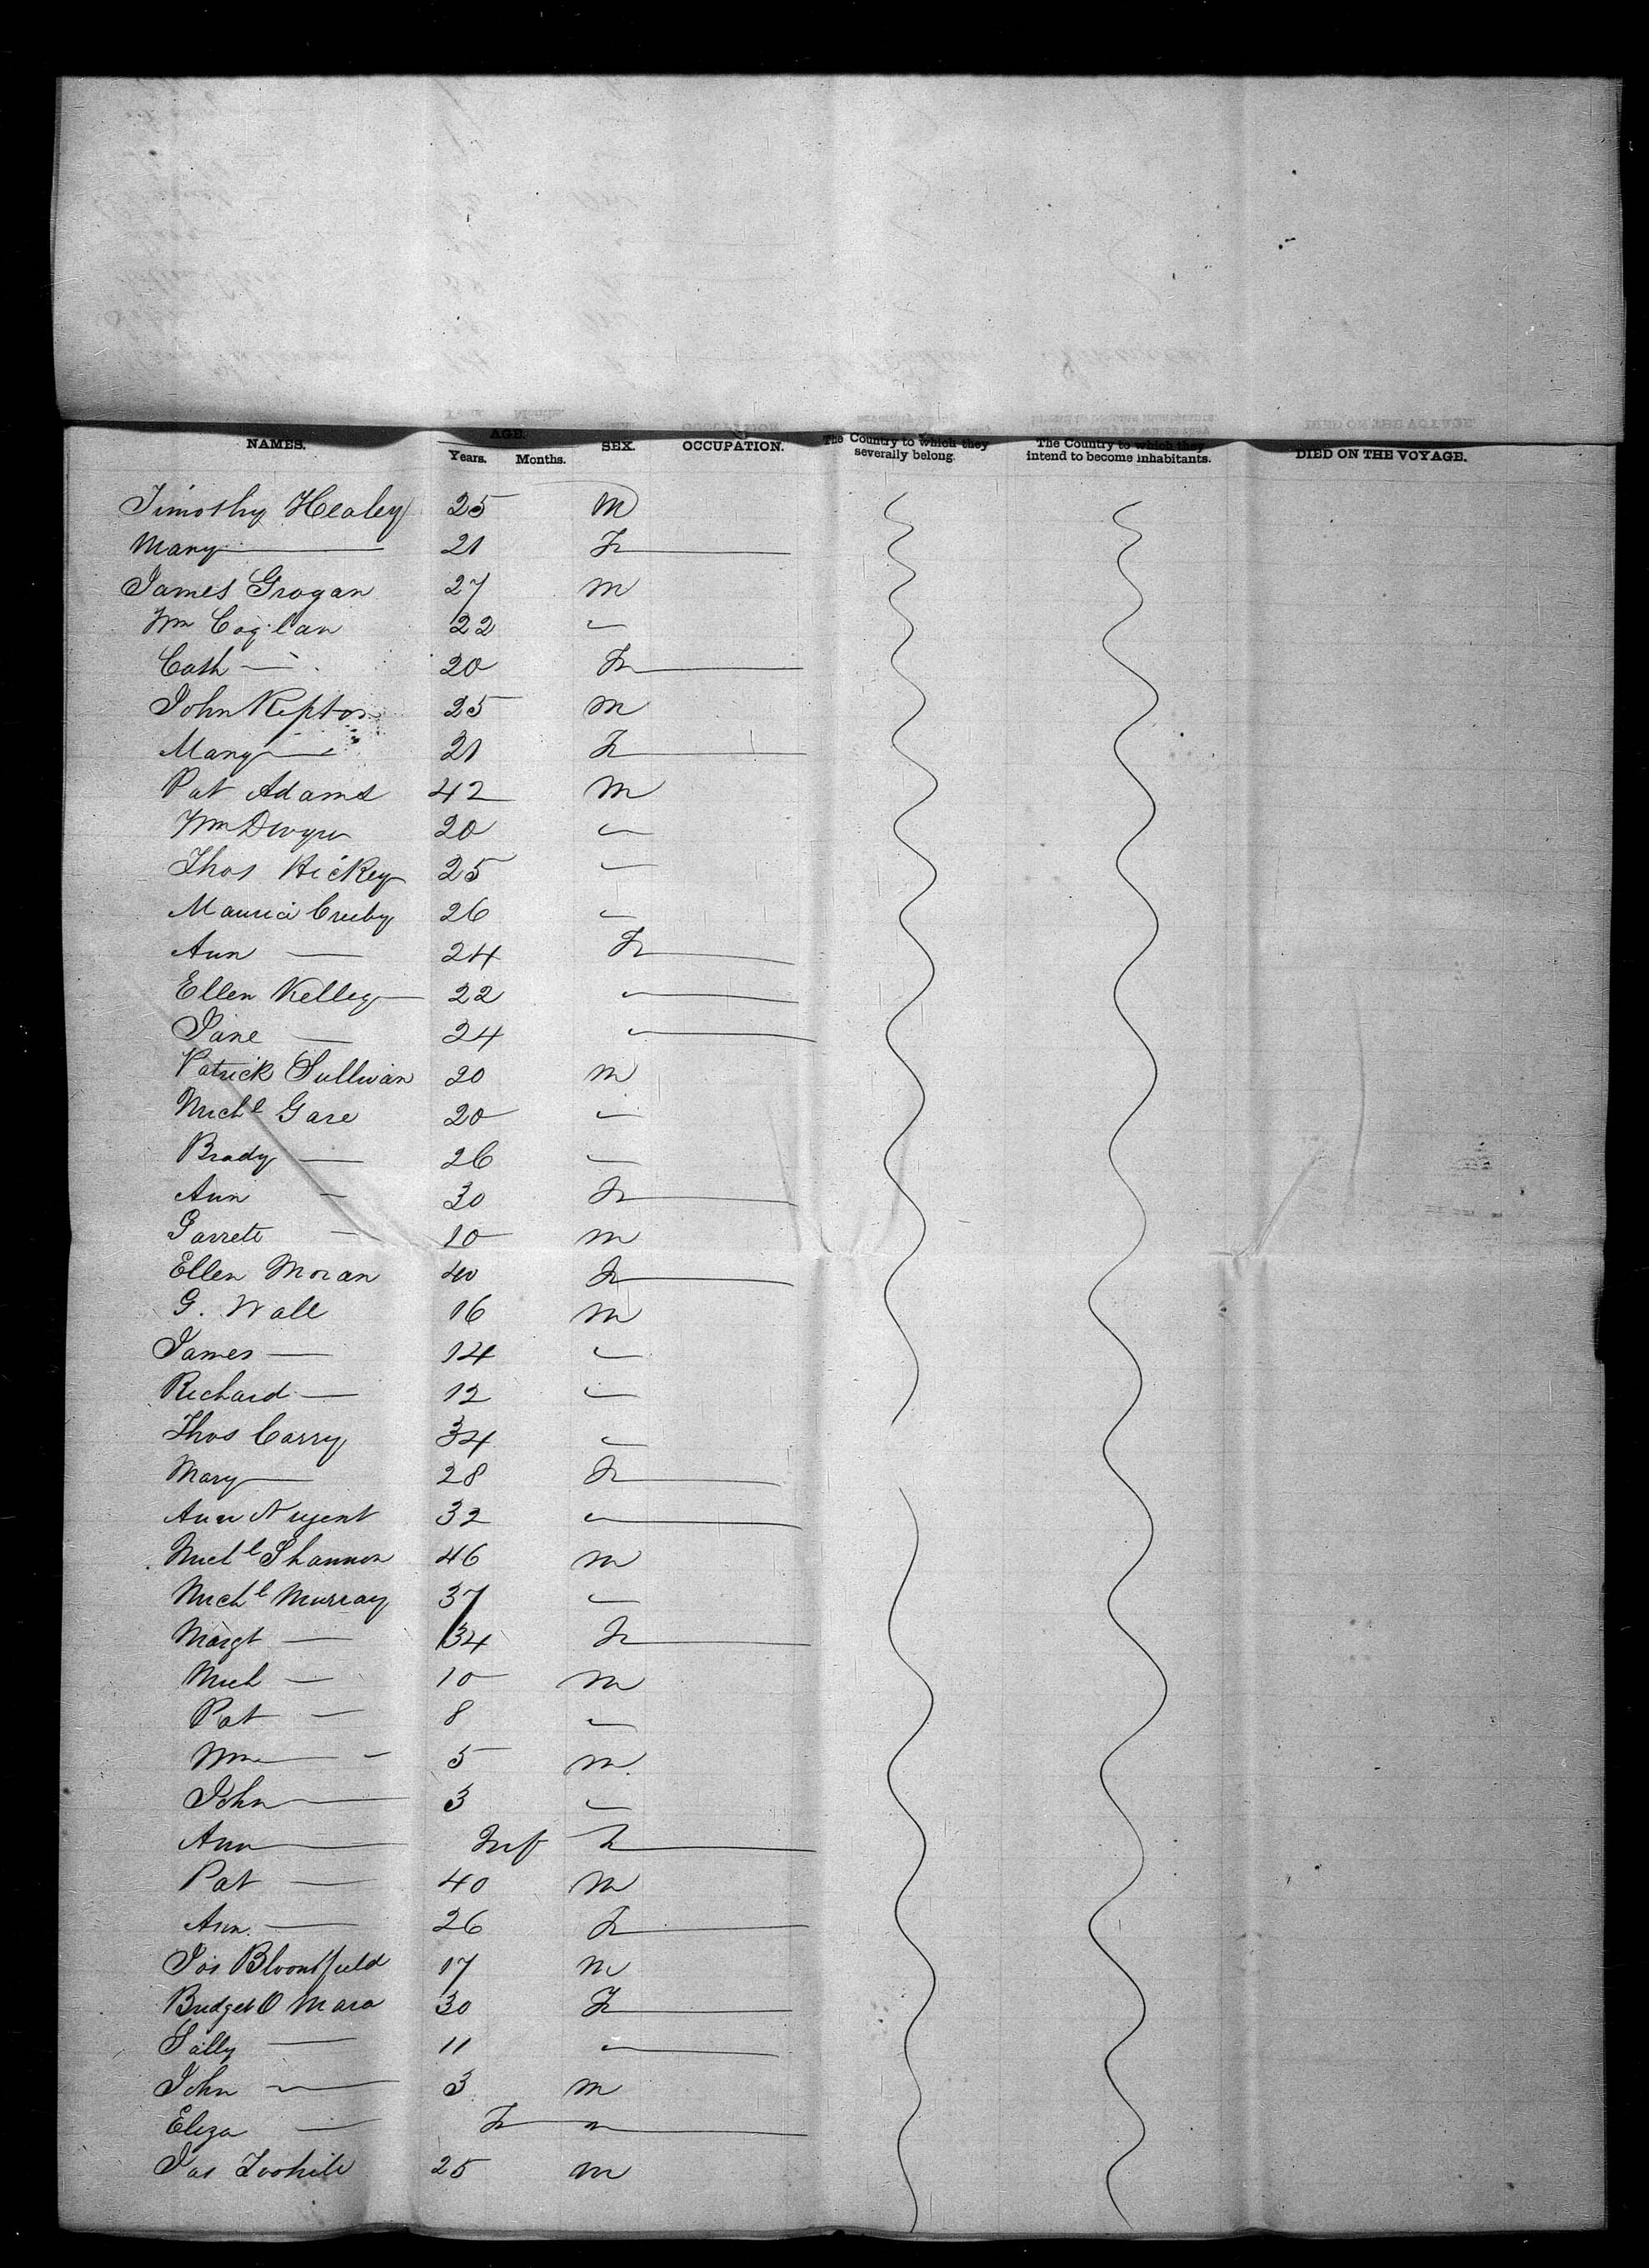 NAMES. AGE. SEX. OCCUPATION. The Country to which they severally belong. The Country to which they intend to become inhabitants. DIED ON THE VOYAGE.
Years. Months.
Timothy Healey 25 M
Mary — 21 F
James Grogan 27 m
Wm Coglan 22 "
Cath — 20 F
John Kepton 25 m
Mary — 21 F
Pat Adams 42 m
Wm Dwyer 20 "
Thos Hickey 25 "
Maurice 26 "
Ann — 24 F
Ellen Kelley 22 "
Jane — 24 "
Patrick Sullivan 20 m
Michl Gare 20 "
Brady — 26 "
Ann - 30 F
Garrett — 10 m
Ellen Moran 40 F
G. Wall 16 m
James — 14 "
Richard — 12 "
Thos Carry 34 "
Mary — 28 F
Ann Nugent 32 "
Michl Shannon 46 m
Michl Murray 37 "
Margt — 34 F
Mich — 10 m
Pat — 8 "
Wm — 5 m
John — 3 "
Ann — Inf F
Pat — 40 m
Ann — 26 F
Jos Bloomfield 17 m
Bridget O Mara 30 F
Sally — 11 "
John — 3 m
Eliza —
Jas Toohill 25 m